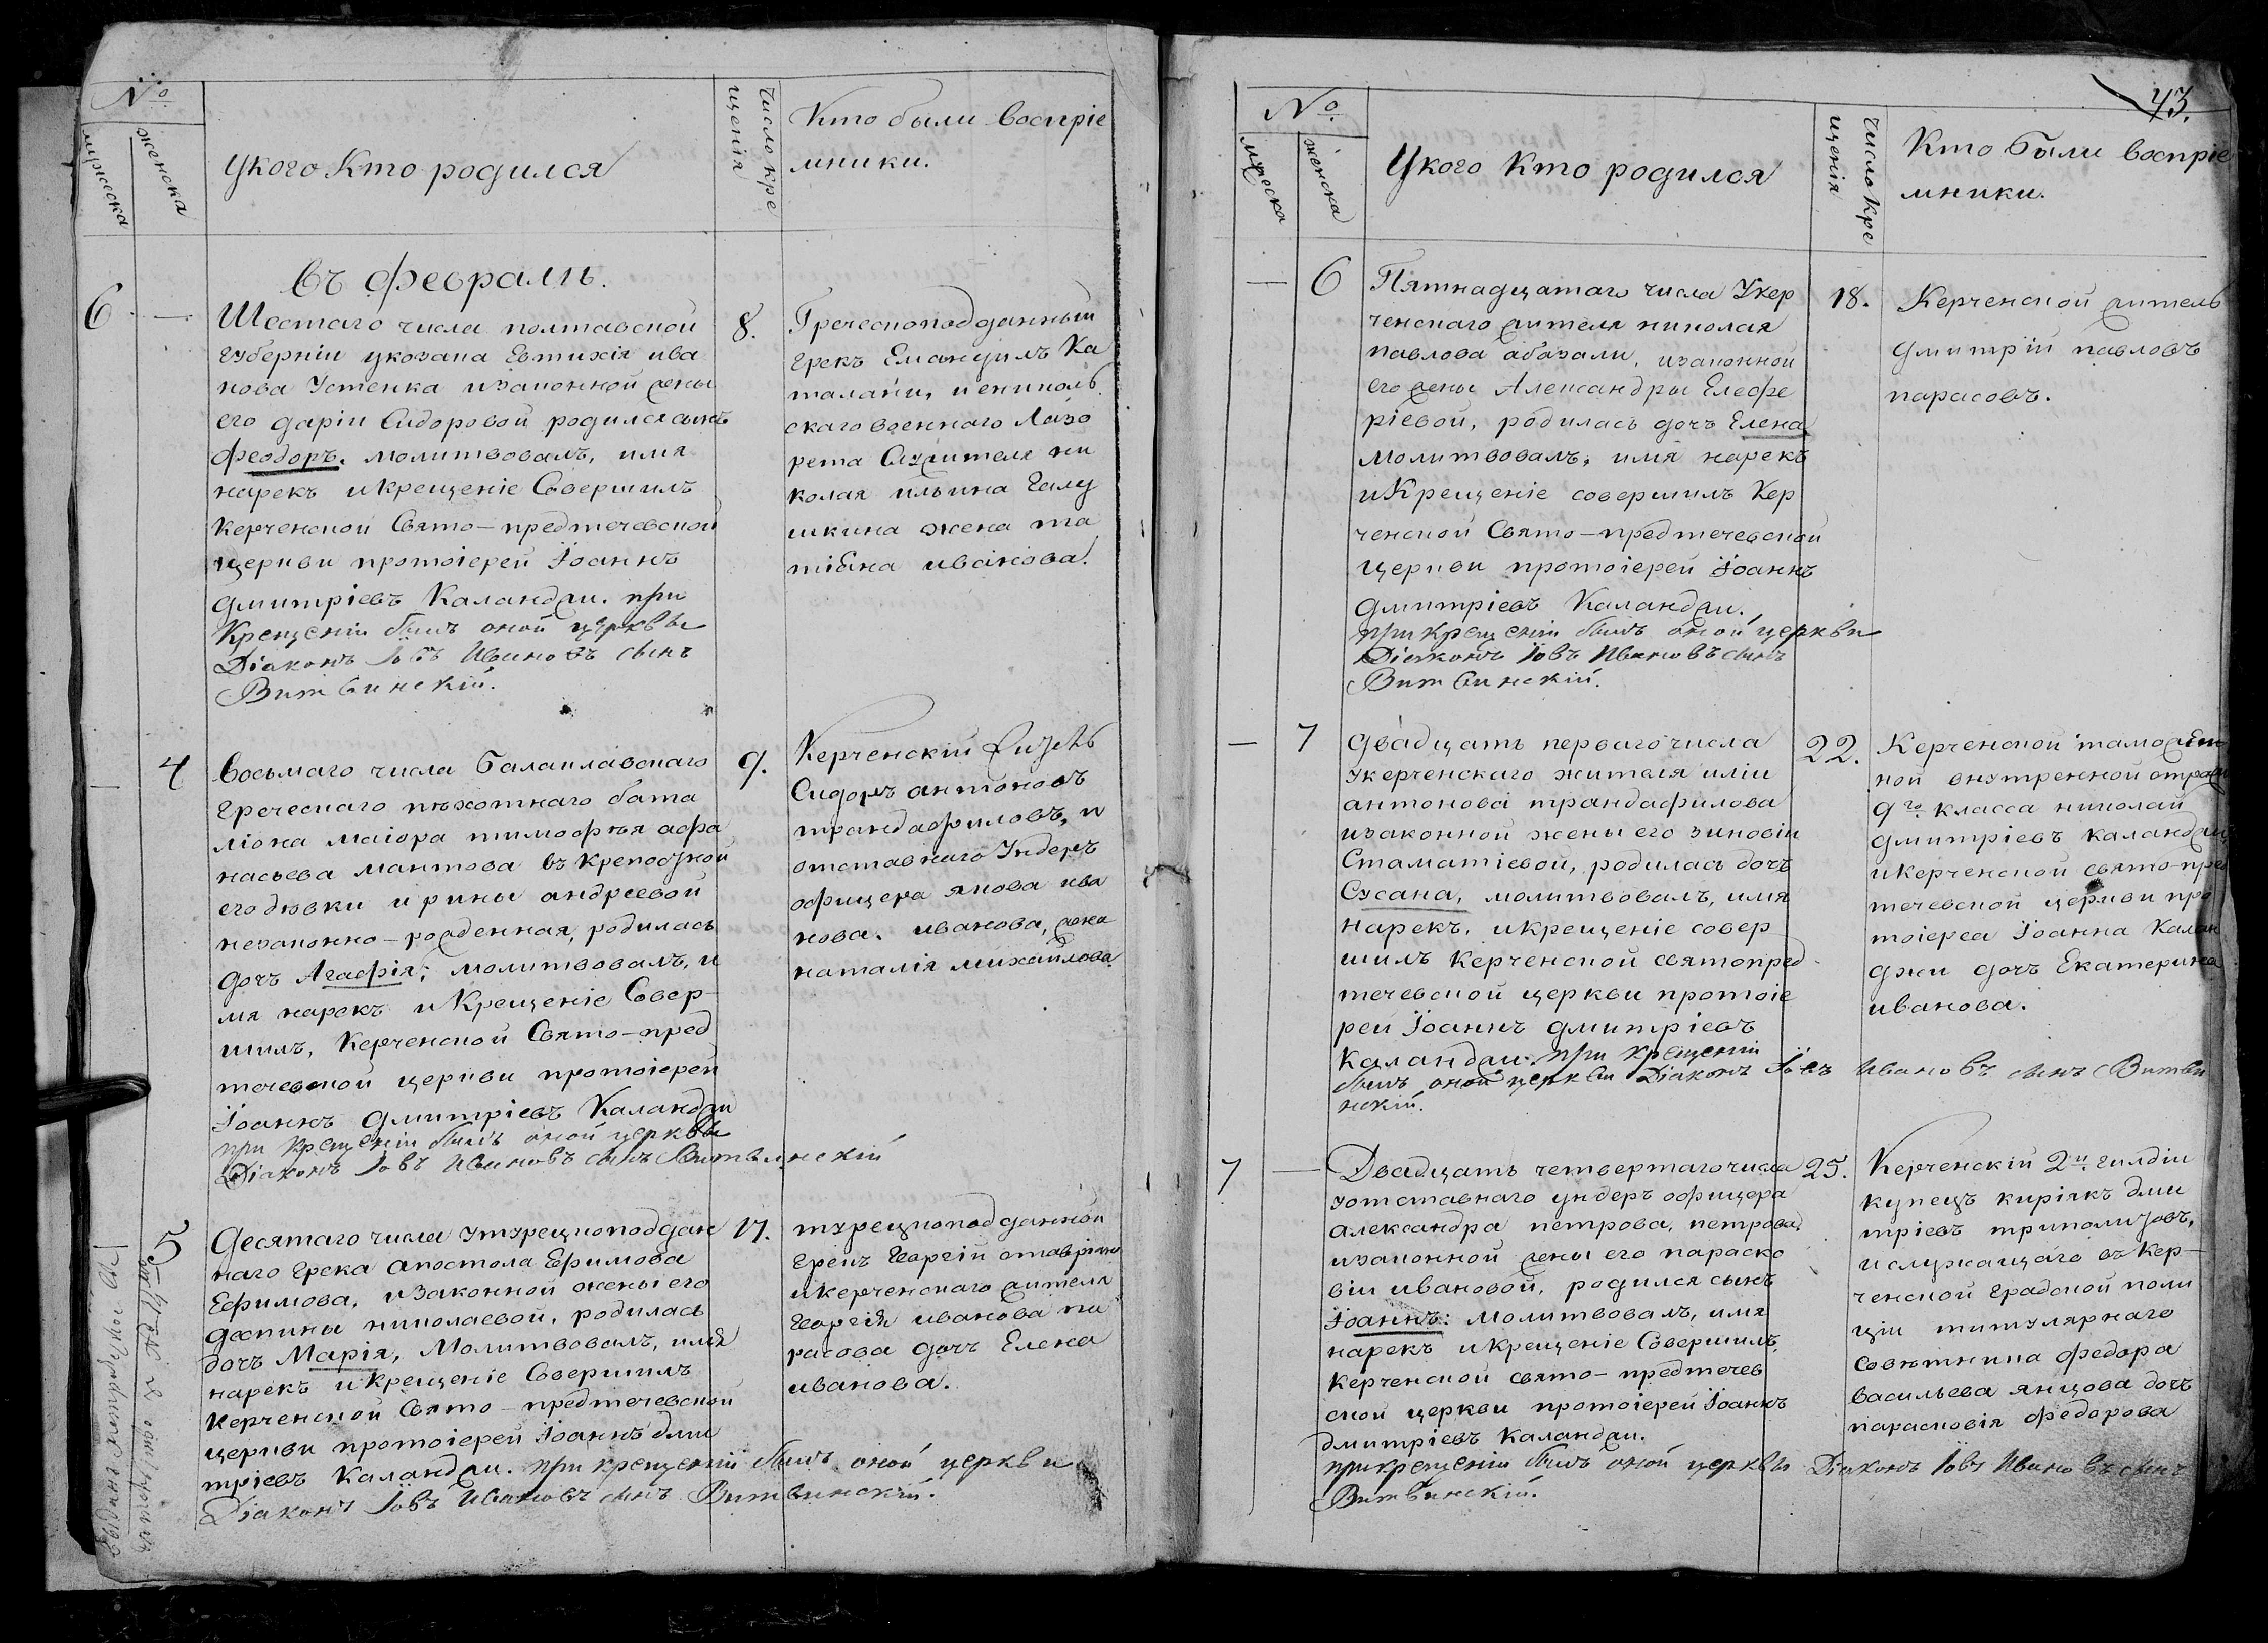 №
мужеска
женска
Укого кто родился
число кре
щенія
Кто были воспріе
мники.
въ февралѣ.
6. —
Шестаго числа полтавской
губерніи указана Евтихія ива
нова Устенка изаконной жены
его даріи Сидоровой родился сынъ
Феодоръ. молитвовалъ, имя
нарекъ икрещеніе Совершилъ
Керченской Свято-предтечевской
церкви протоіерей Іоаннъ
дмитріевъ Каланджи. при
Крещеніи былъ оной церквы
Діаконъ Іовъ Ивановъ сынъ
Витвинскій.
8.
Греческоподданный
грекъ Емануилъ Ка
талани, иениколь
скаго военнаго Лазо
рета Служителя ни
колая ильина Галу
шкина жена та
тіана иванова.
— 4
Восьмаго числа Балаклавскаго
Греческаго пѣхотнаго бата
ліона маіора тимофѣя афа
насьева мантова въ крепостной
его дѣвки ирины андреевой
незаконно-рожденная, родилась
дочь Агафія; молитвовалъ, и
мя нарекъ икрещеніе Совер-
шилъ, Керченской Свято-пред
течевской церкви протоіерей
Іоаннъ дмитріевъ Каланджи
при крещеніи былъ оной церквы
Діаконъ Іовъ Ивановъ сынъ Витвинскій
9.
Керченскій
Сидоръ антоновъ
трандафиловъ, и
отставнаго Ундеръ
офицера якова ива
нова. иванова, жена
наталія михайлова.
5
Десятаго числа утурецкоподдан
наго грека апостола Ефимова
Ефимова, изаконной жены его
деспины николаевой, родилась
дочь Марія, Молитвовалъ, имя
нарекъ икрещеніе Совершилъ
Керченской Свято-предтечевской
церкви протоіерей Іоаннъ дми
тріевъ Каланджи. при крещеніи былъ оной церкви
Діаконъ Іовъ Ивановъ сынъ Витвинскій.
17.
турецкоподданной
грекъ Георгій ставріно
икерченскаго жителя
Георгія иванова па
расова дочь Елена
иванова.
43.
№
мужеска
женска
Укого Кто родился
число кре
щенія
Кто были воспріе
мники.
— 6
Пятнадцатаго числа Укер
ченскаго жителя николая
павлова абазали, изаконной
его жены Александры Елефе
ріевой, родилась дочь Елена
молитвовалъ, имя нарекъ
икрещеніе совершилъ Кер
ченской Свято-предтечевской
церкви протоіерей Іоаннъ
дмитріевъ Каланджи.
при крещеніи былъ оной церкви
Діаконъ Іовъ Ивановъ сынъ
Витвинскій.
18.
Керченской житель
дмитрій павловъ
парасовъ.
— 7
двадцать перваго числа
укерченскаго жителя иліи
антонова трандафилова
изаконной жены его зиновіи
Стаматіевой, родилась дочь
Сусана, молитвовалъ, имя
нарекъ, икрещеніе совер
шилъ Керченской святопред
течевской церкви протоіе
рей Іоаннъ дмитріевъ
Каланджи. при крещеніи
былъ оной церкви Діаконъ Іовъ Ивановъ сынъ Витви
нскій.
22.
Керченской таможен
ной внутренной стражи
9го класса николай
дмитріевъ каланджи,
икерченской свято-пред
течевской церкви про
тоіерея Іоанна Калан
джи дочь Екатерина
иванова.
7 —
Двадцать четвертаго числа
уотставнаго ундеръ офицера
александра петрова, петрова.
изаконной жены его параско
віи ивановой, родился сынъ
Іоаннъ: молитвовалъ, имя
нарекъ икрещеніе Совершилъ,
Керченской свято-предтечев
ской церкви протоіерей Іоаннъ
дмитріевъ Каланджи.
при крещеніи былъ оной церквы Діаконъ Іовъ Ивановъ сынъ
Витвинскій.
25.
Керченскій 2й гилдіи
купецъ киріякъ дми
тріевъ триполизовъ,
ислужащаго въ Кер-
ченской градской поли
ціи титулярнаго
совѣтника федора
васильева янцова дочь
парасковія федорова